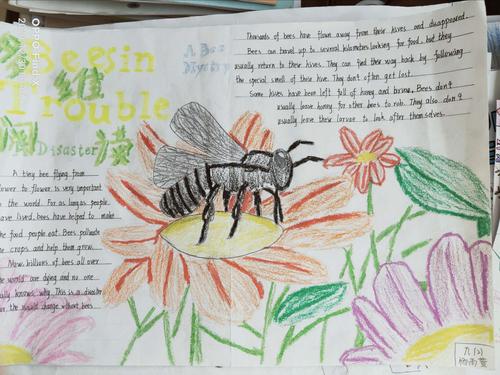 Bees in
Trouble
A Disaster
A Bee
Mystery
Thousands of bees have flown away from their hives and disappeared.
Bees can travel up to several kilometers looking for food, but they
usually return to their hives. They can find their way back by following
the special smell of their hive. They don't often get lost.
Some hives have been left full of honey and
Bees don't
usually leave honey for other bees to rob. They also don't
usually leave their larvae to look after themselves.
A tiny bee flying from
flower to flower is very important
to the world. For as long as people
have lived, bees have helped to make
the food people eat. Bees pollinate
the crops and help them grow.
Now, billions of bees all over
the world are dying and no one
really knows why. This is a disaster
the world change without bees
九(2)